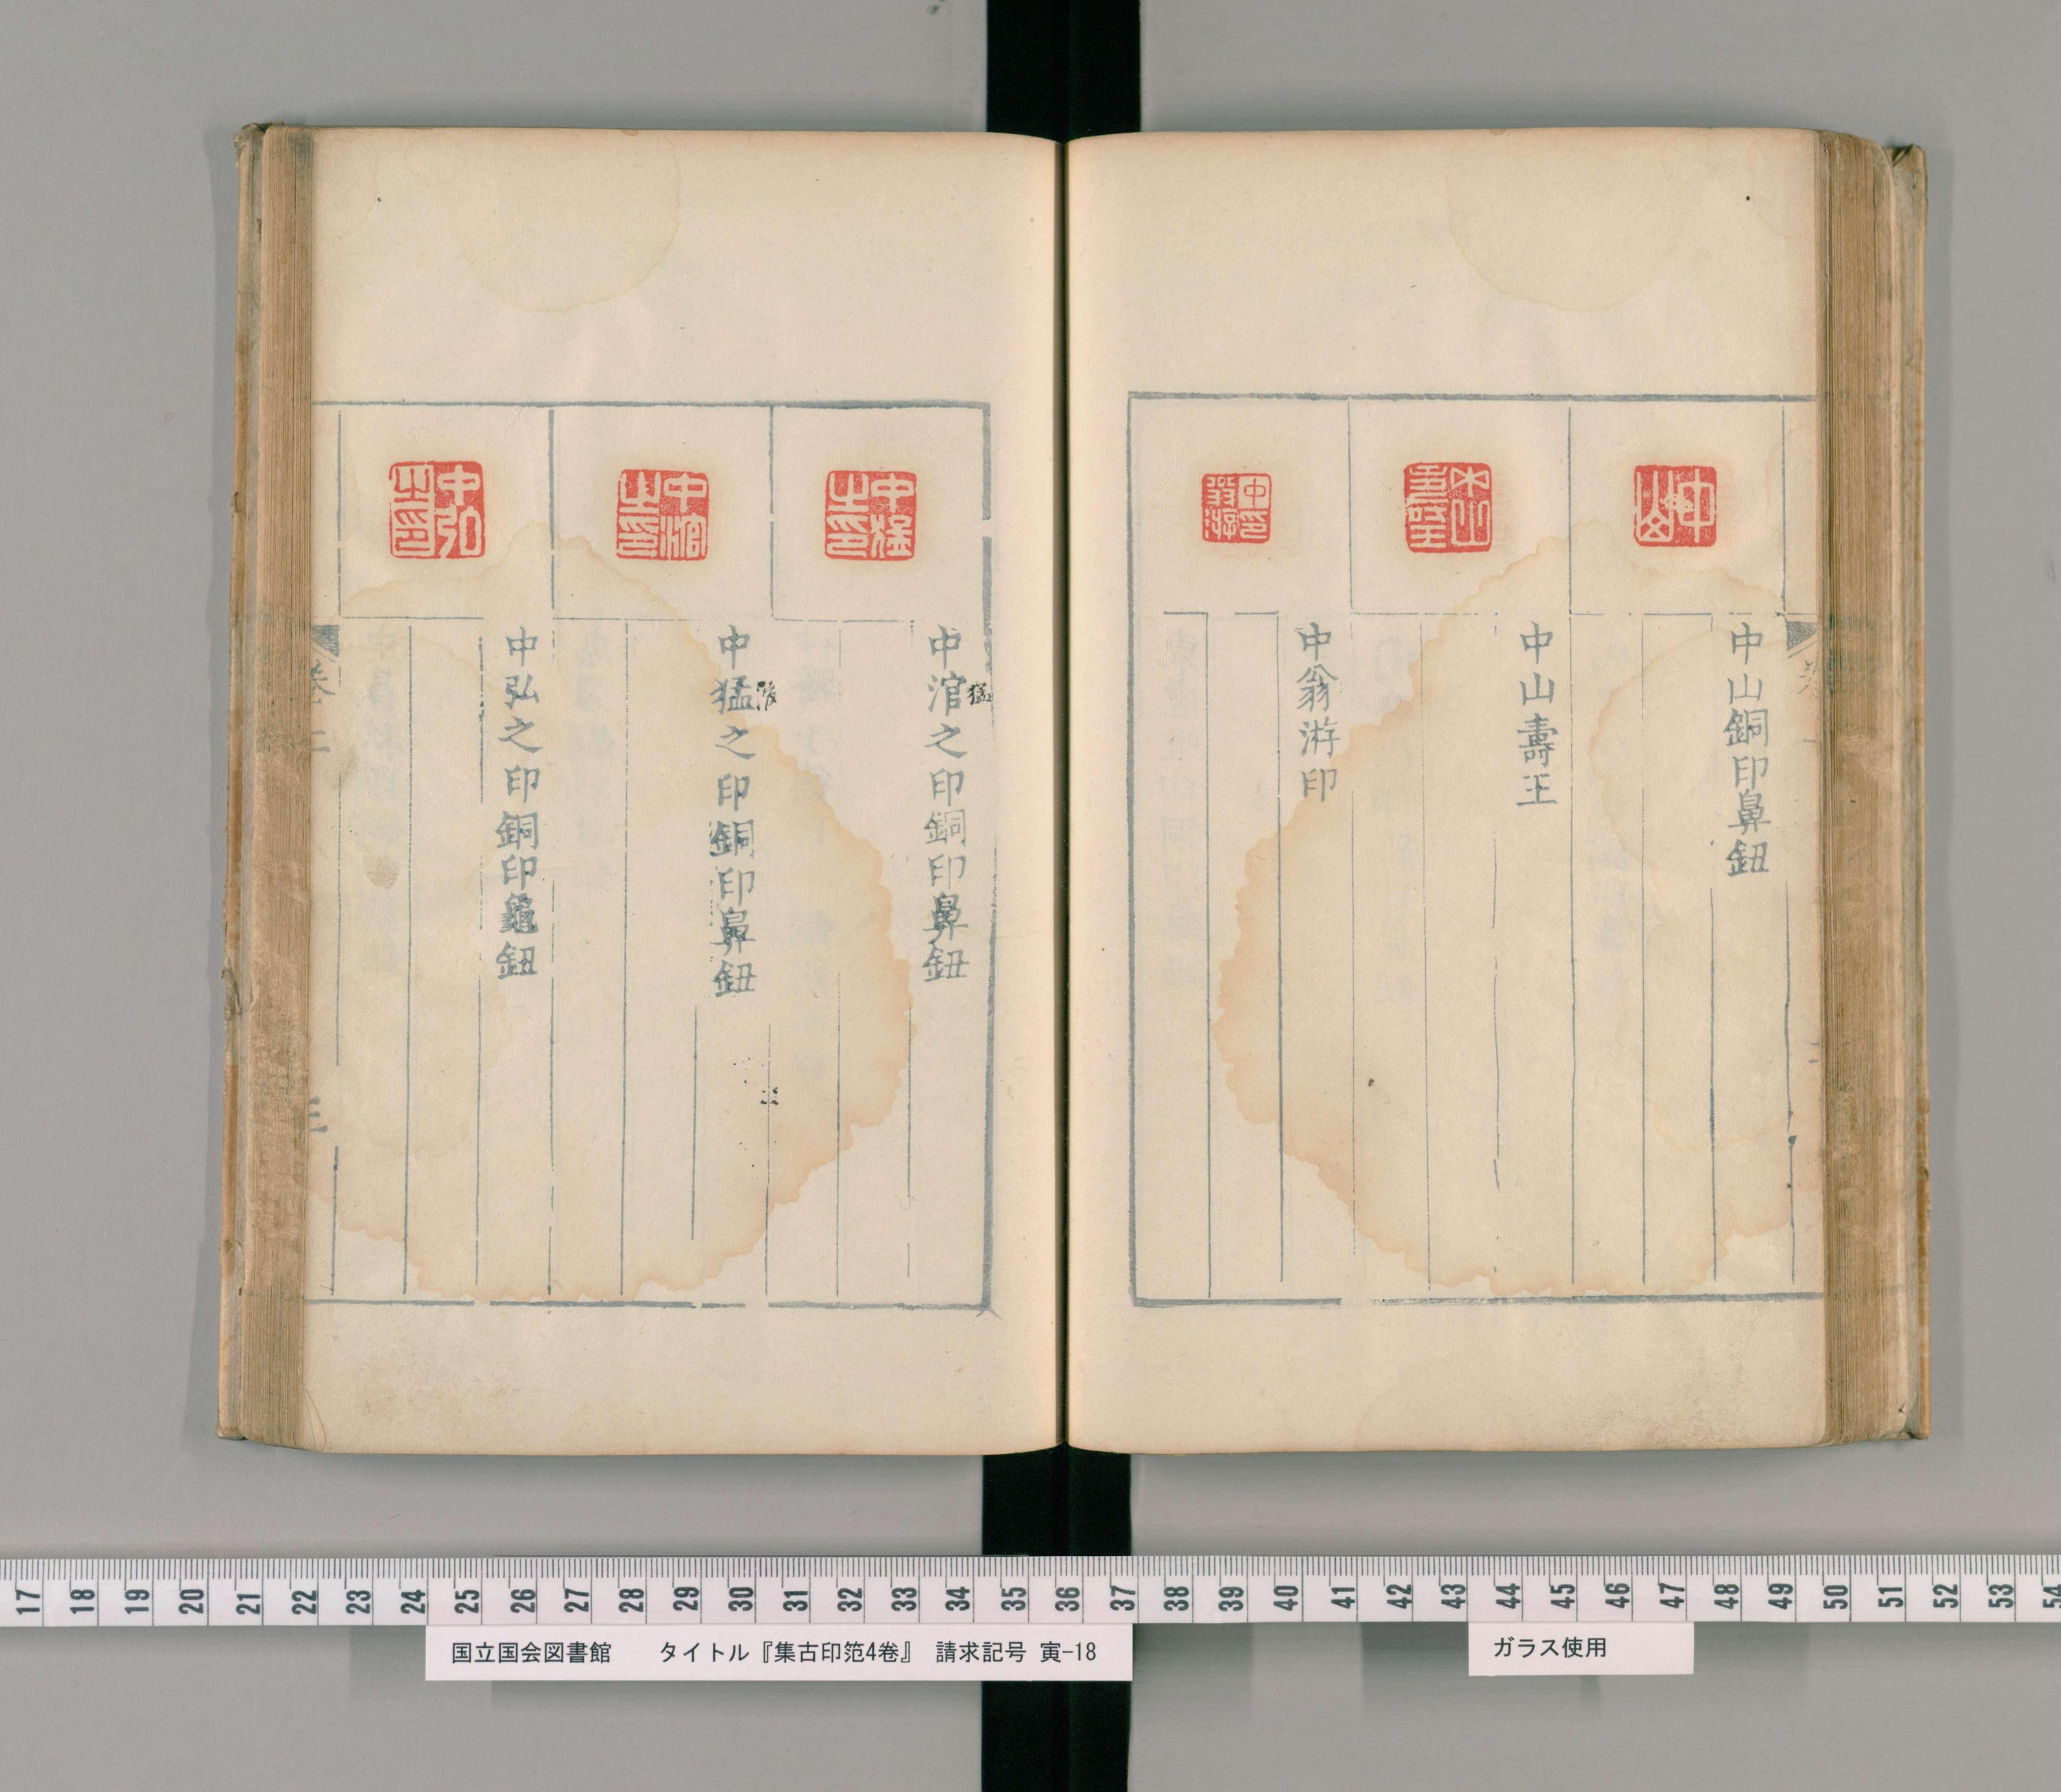 中山銅印鼻鈕
中山壽王
中翁游印
中涫之印銅印鼻鈕
猛
中猛之印銅印鼻鈕
中弘之印銅印龜鈕
卷二
三
17 18 19 20 21 22 23 24 25 26 27 28 29 30 31 32 33 34 35 36 37 38 39 40 41 42 43 44 45 46 47 48 49 50 51 52 53 54
国立国会図書館 タイトル『集古印笵4巻』 請求記号 寅-18
ガラス使用